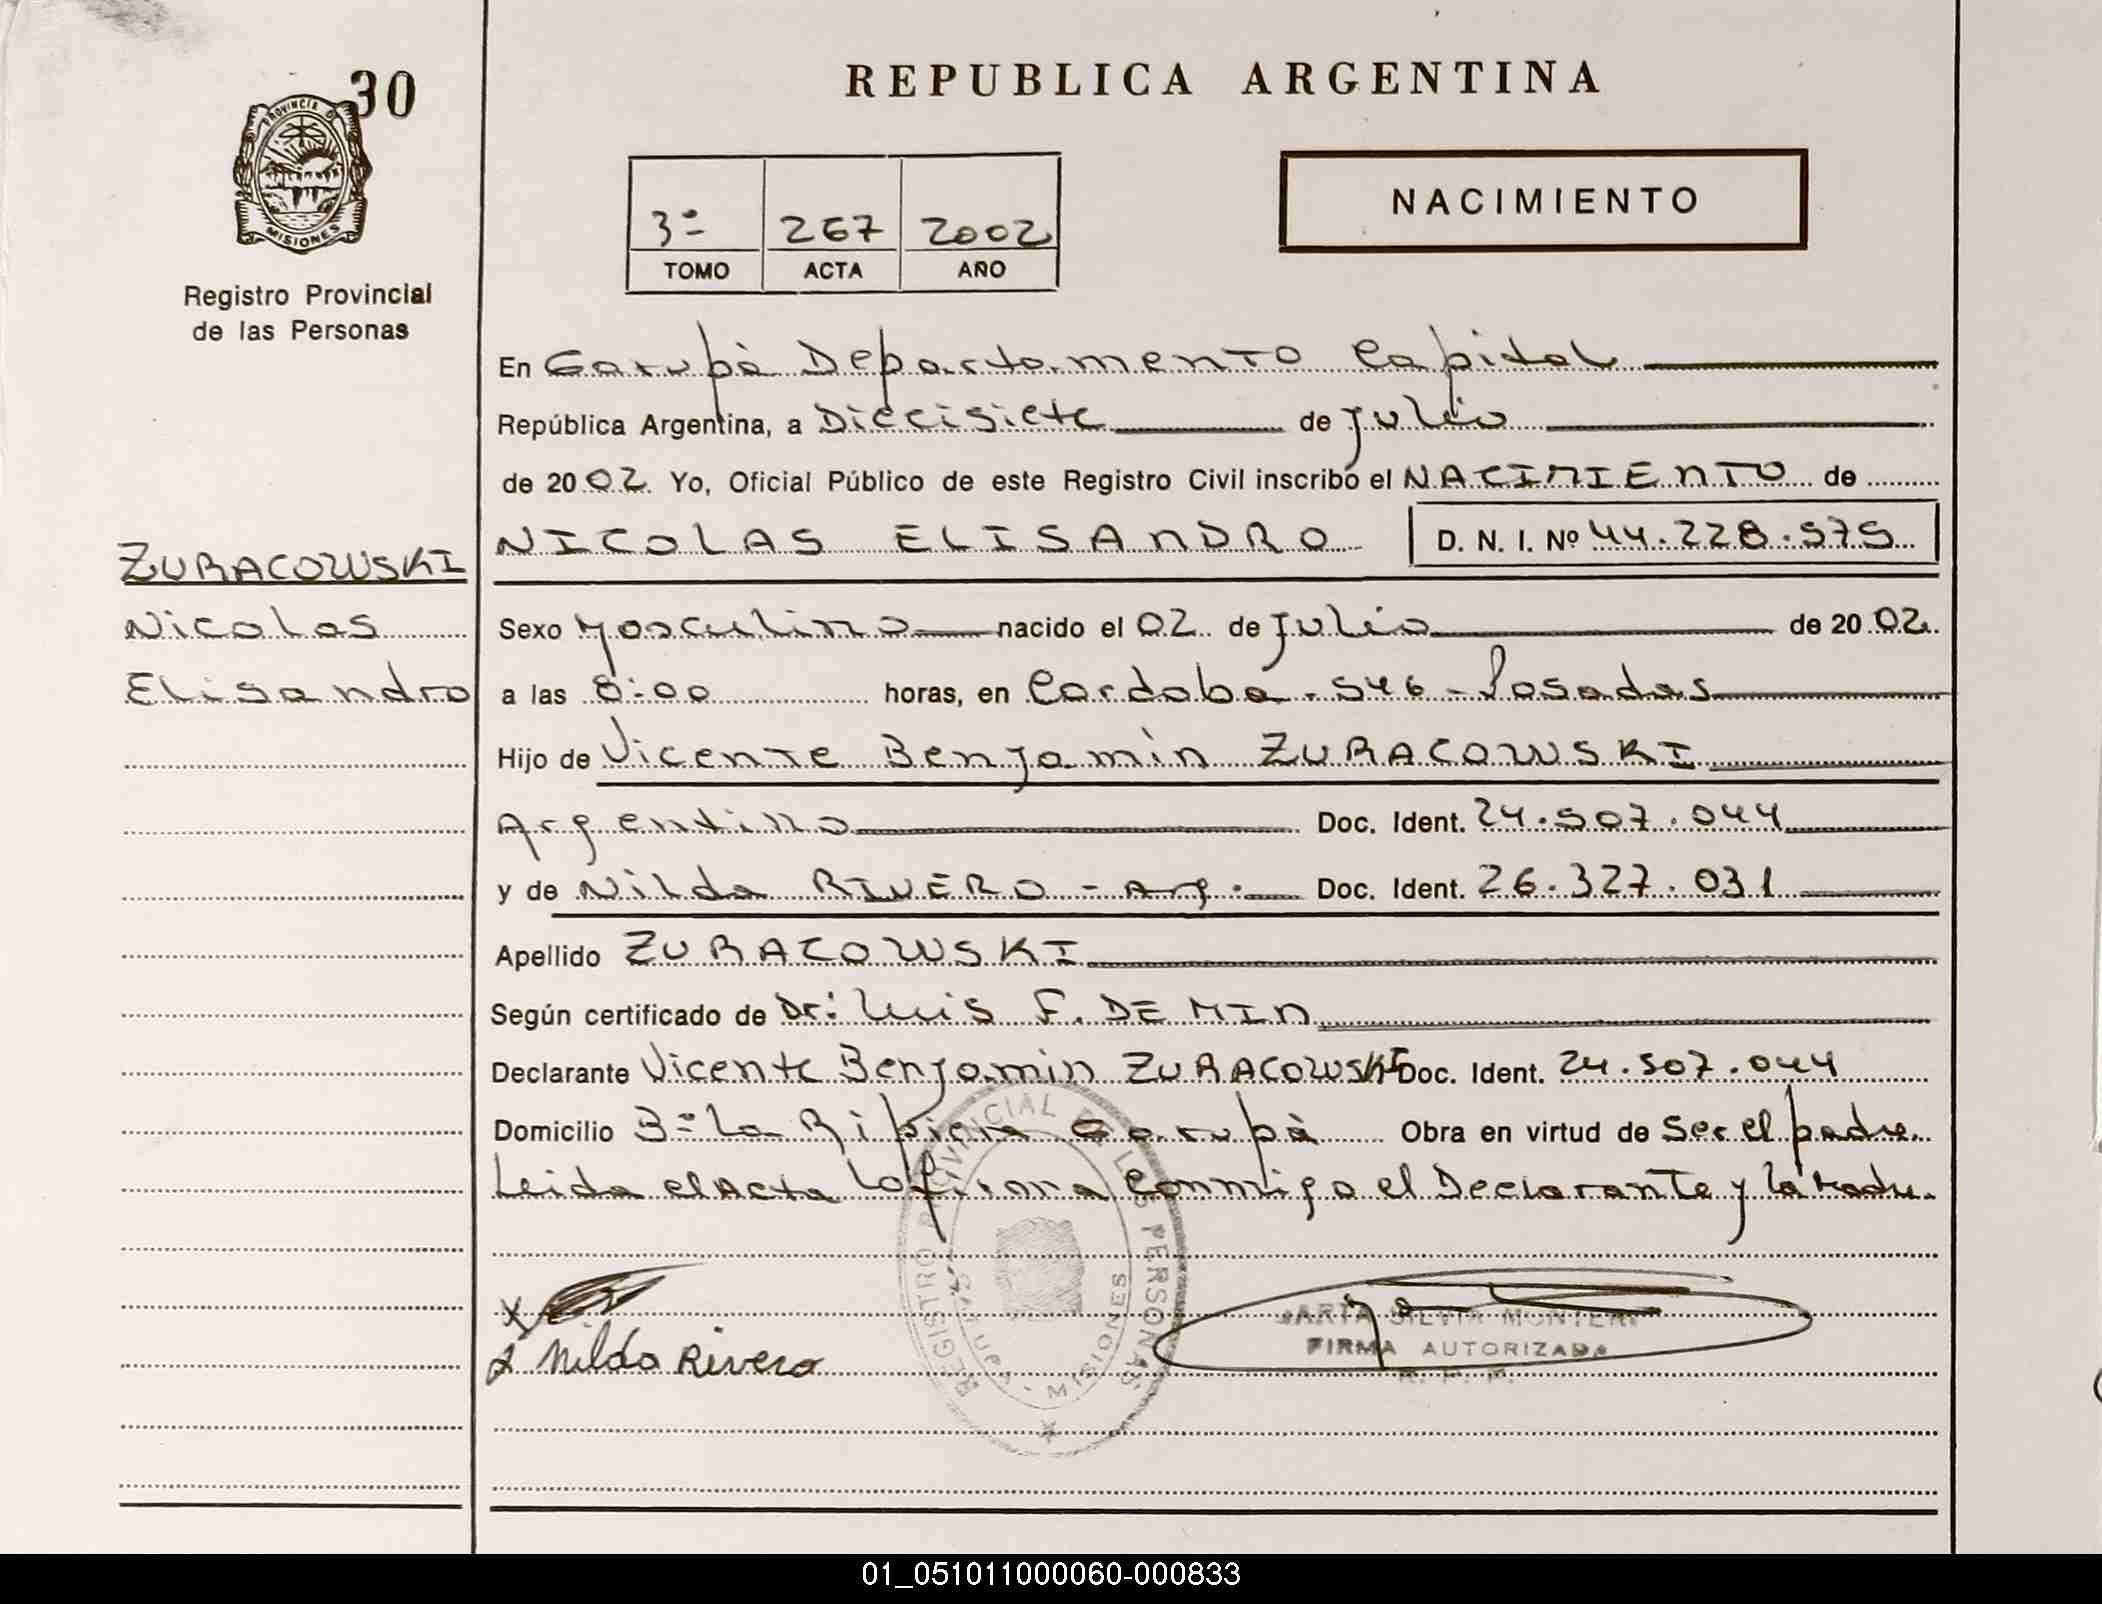 30
PROVINCIA DE
MISIONES
Registro Provincial
de las Personas
REPUBLICA ARGENTINA
3º 267 2002
TOMO ACTA AÑO
NACIMIENTO
En Garupà Departamento Capital
República Argentina, a Diecisiete de Julio
de 2002 Yo, Oficial Público de este Registro Civil inscribo el NACIMIENTO de
NICOLAS ELISANDRO D. N. I. Nº 44.228.575
ZURACOWSKI
Nicolas
Elisandro
Sexo Masculino nacido el 02 de Julio de 2002
a las 8:00 horas, en Cordoba - 546 - Posadas
Hijo de Vicente Benjamin ZURACOWSKI
Argentino Doc. Ident. 24.507.044
y de Nilda RIVERO - Arg. Doc. Ident. 26.327.031
Apellido ZURACOWSKI
Según certificado de Dr: Luis F. DE MIN
Declarante Vicente Benjamin ZURACOWSKI Doc. Ident. 24.507.044
Domicilio Bº La Ripiera Garupà Obra en virtud de Ser el padre
Leida el Acta La firma Conmigo el Declarante y la Madre
REGISTRO PROVINCIAL DE LAS PERSONAS
GARUPA - MISIONES
Nilda Rivero
MARTA SILVIA
FIRMA AUTORIZADA
R. P. P.
01_051011000060-000833